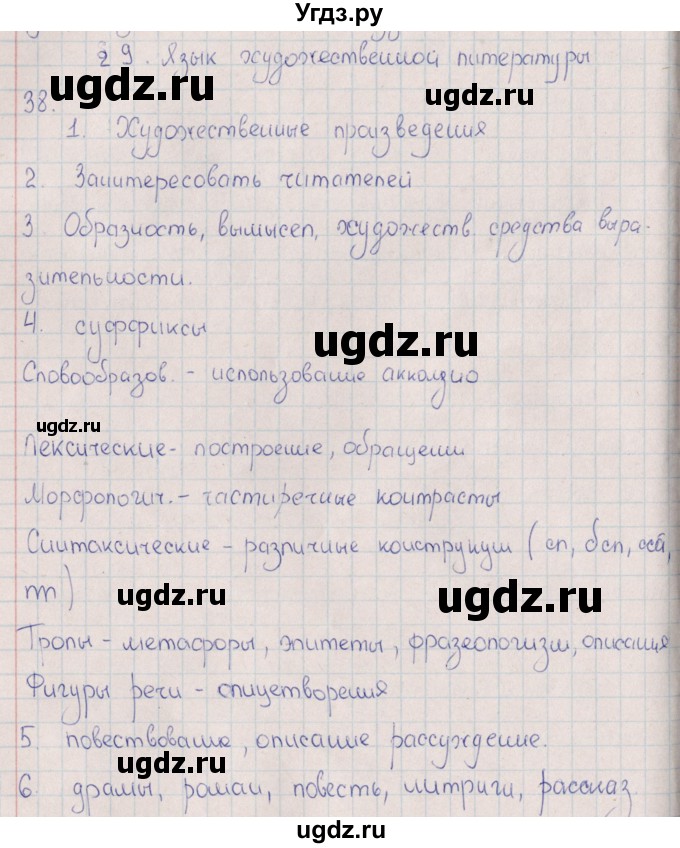 Угдз.ру
§ 9. Язык художественной литературы
ugdz.ru ugdz.ru
38.
1. Художественные произведения
2. Заинтересовать читателей
3. Образность, вымысел, художеств. средства выра-
зительности.
4. суффиксы
ugdz.ru
Словообразов. - использование
ugdz.ru
Лексические - построение, обращении
Морфологич. - частиречные контрасты
Синтаксические - различные конструкции ( сп, бсп,
ugdz.ru ugdz.ru
Тропы - метафоры, эпитеты, фразеологизм, описания
Фигуры речи - олицетворения
ugdz.ru
5. повествование, описание рассуждение.
ugdz.ru
6. драмы, роман, повесть, интриги, рассказ
ugdz.ru